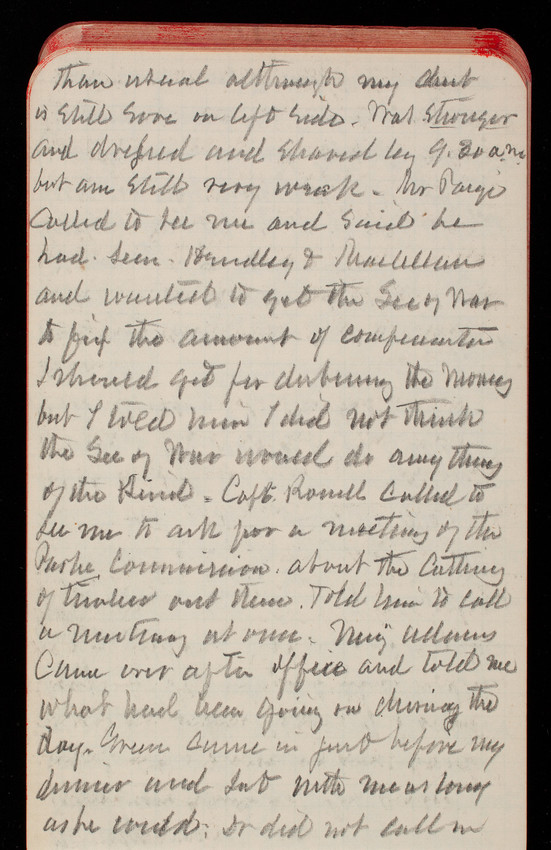 than usual although my chest
is still sore on left side. Was Stronger
and dressed and shaved by 9.30 a.m.
but am still very weak. Mr Paige
Called to see me and said he
had seen Hendley &
and wanted to get the Sec of War
to fix the amount of compensation
I should get for disbursing the money
but I told him I did not think
the Sec of War would do anything
of the Kind. Capt. Rowell called to
see me to ask for a meeting of the
Park Commission about the Cutting
of timber out there. Told him to call
a meeting at once. Maj Adams
Came over after office and told me
what had been going on during the
day. Green came in just before my
dinner and sat with me as long
as he could. Dr did not call in